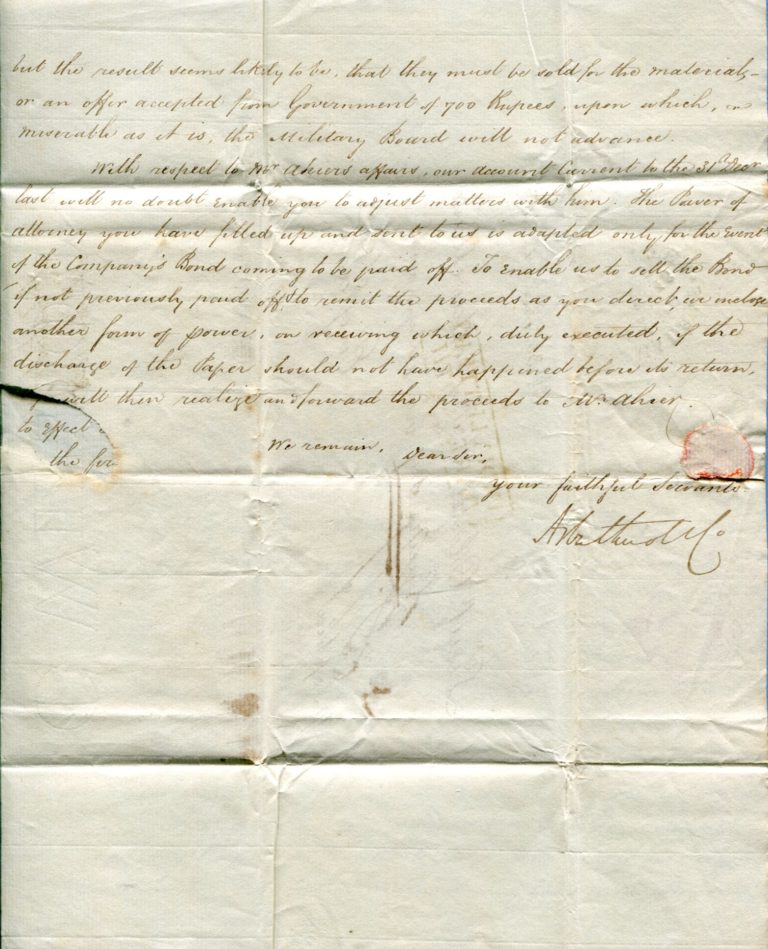 but the result seems likely to be, that they must be sold for the materials –
or an offer accepted from Government of 700 Rupees, upon which,
miserable as it is, the Military Board will not advance.
With respect to Mr Ahiers affairs, our account Current to the 31st Decr
last will no doubt enable you to adjust matters with him. The Power of
attorney you have filled up and sent to us is adapted only for the Event
of the Company's Bond coming to be paid off. To Enable us to sell the Bond
if not previously paid off & to remit the proceeds as you direct, we inclose
another form of power, on receiving which, duly executed, if the
discharge of the Paper should not have happened before its return,
will then realize and forward the proceeds to Mr Ahier.
to effect
the for
We remain, Dear Sir,
your faithful Servants
Arbuthnot & Co